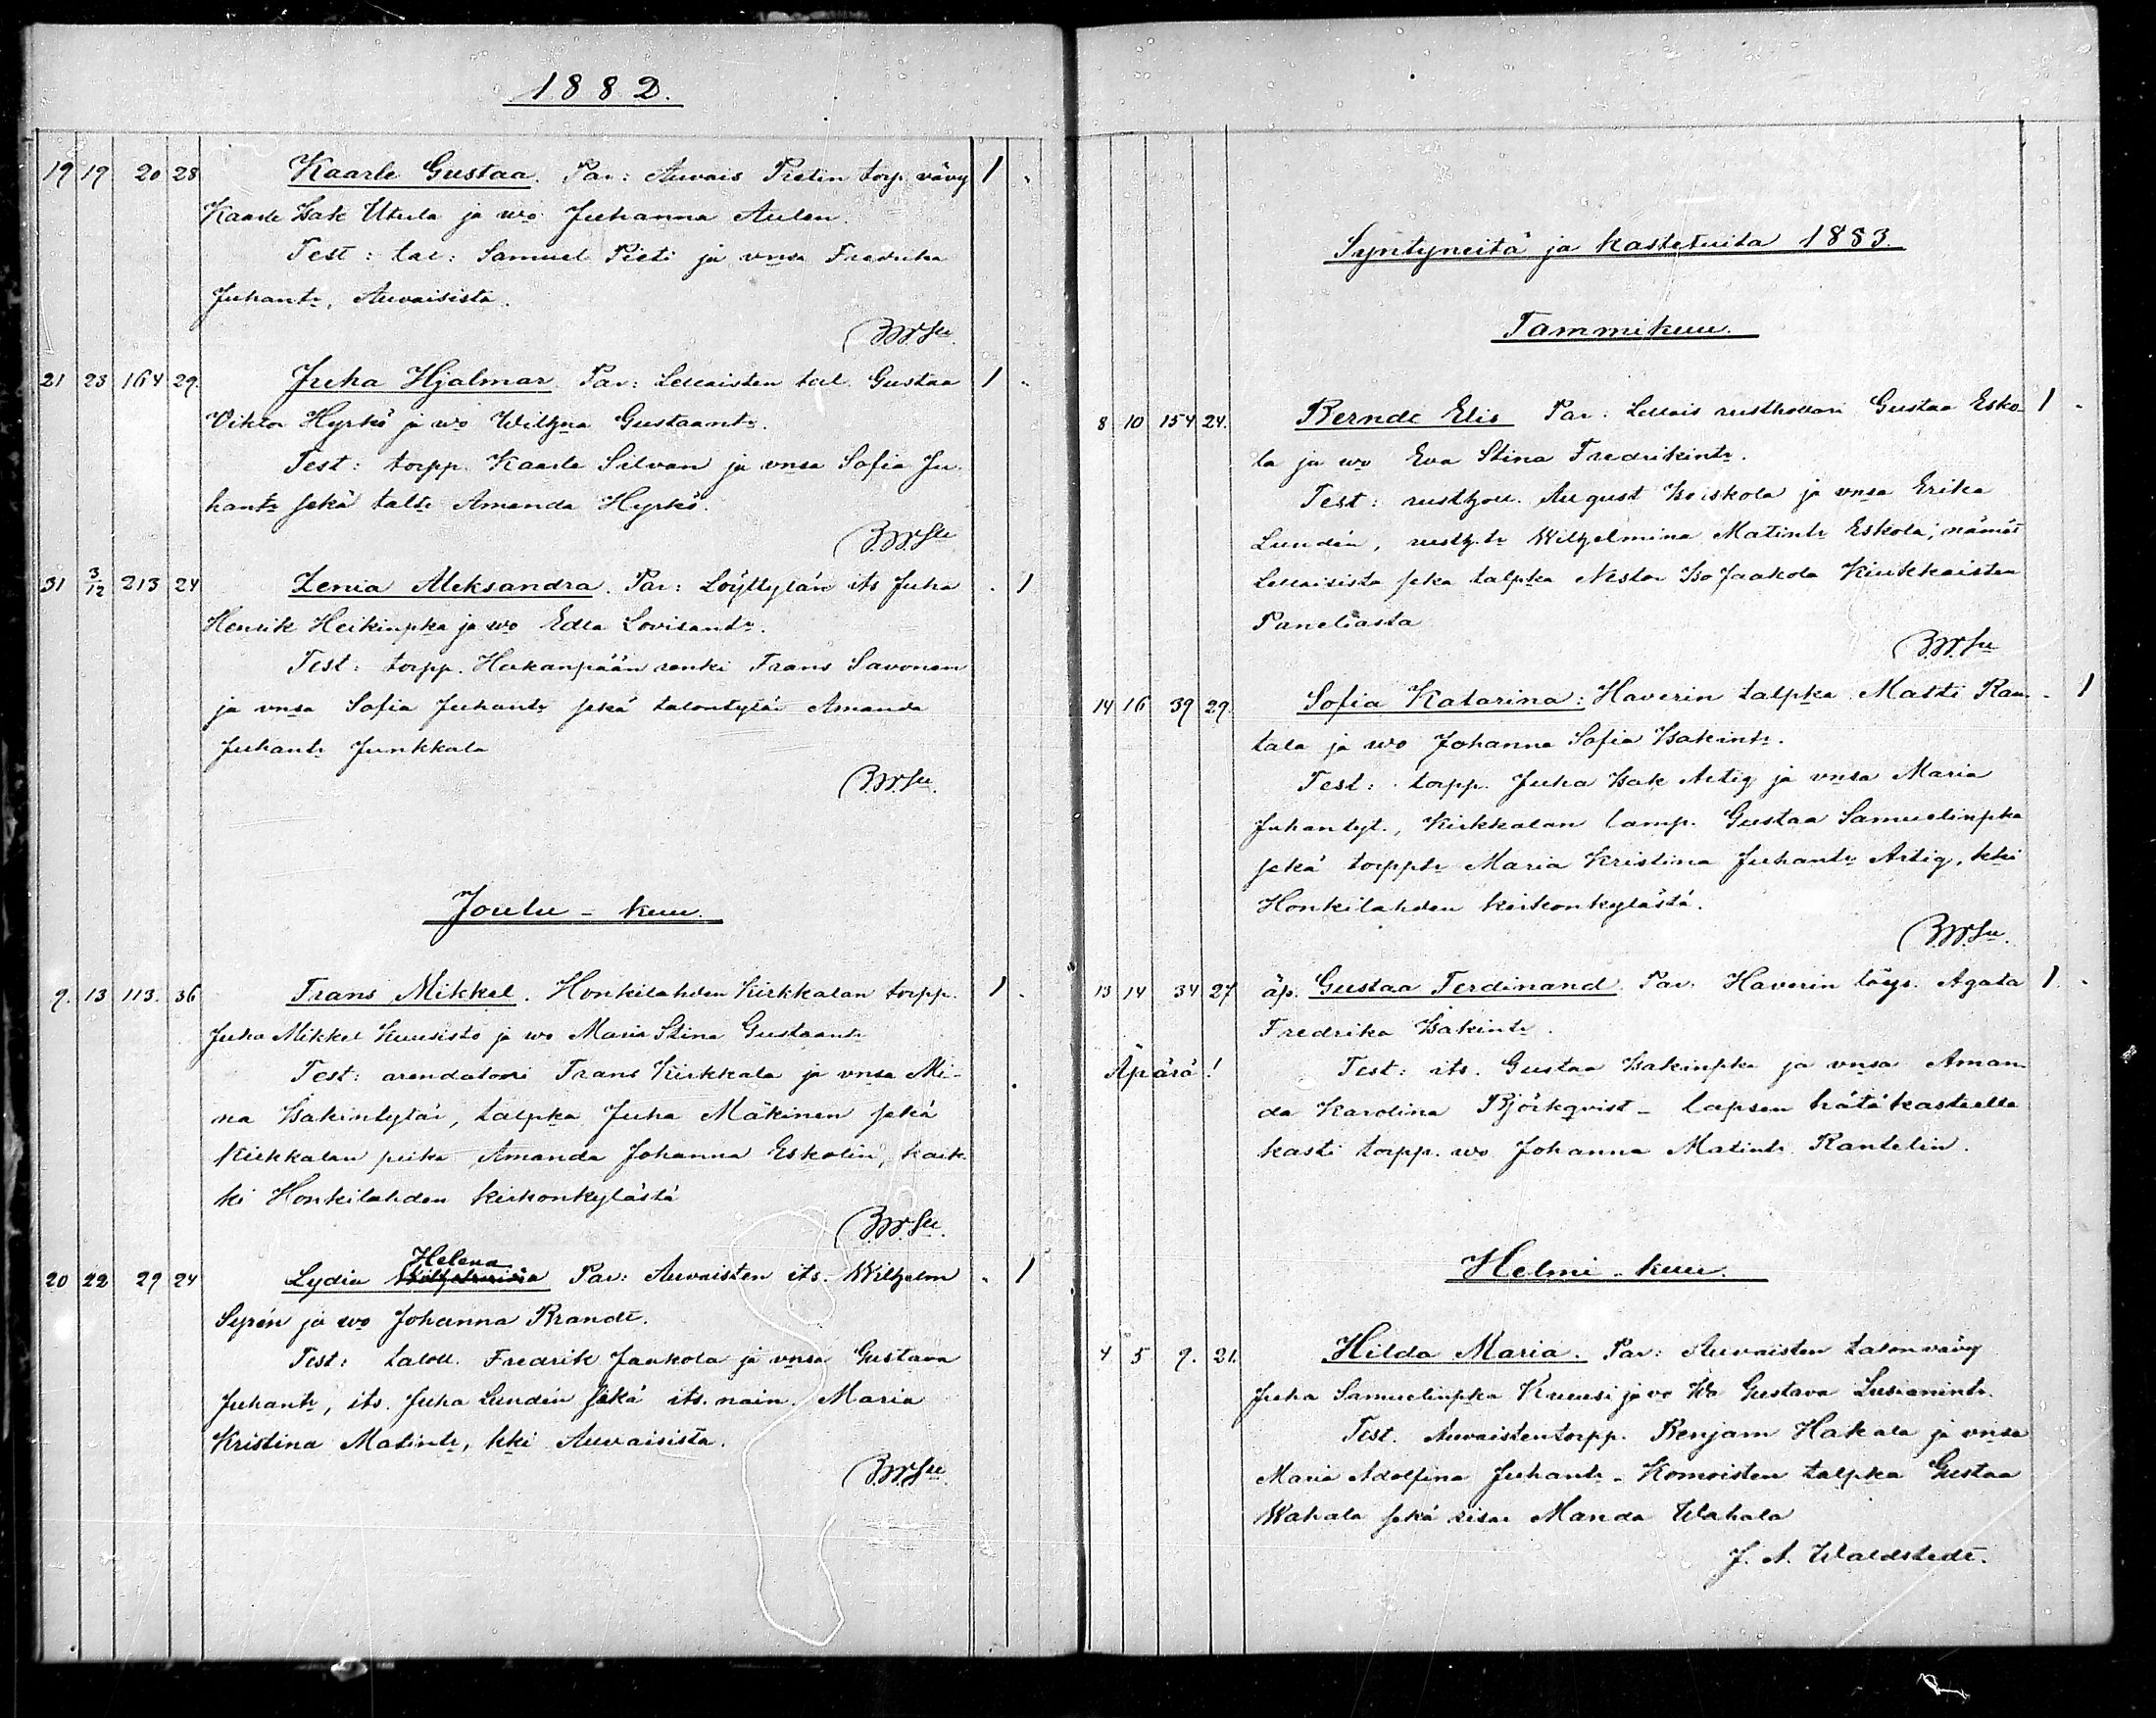 1882.
19 19 20 28 Kaarle Gustaa. Par: Auvais Pietin torp. vävy 1
Kaarle Isak Utula ja wo Juhanna Aulen.
Test: tal: Samuel Pieti ja vnsa Fredrika
Juhantr, Auvaisista.
21 23 164 29. Juha Hjalmar Par: Lellaisten tal. Gustaa 1
Viktor Hyrkö ja wo Wilhna Gustaantr.
Test: torpp. Kaarle Silvan ja vnsa Sofia Ju-
hantr sekä taltr Amanda Hyrkö.
31 3/12 213 24 Zenia Aleksandra. Par: Löyttylän its Juha 1
Henrik Heikinpka ja wo Edla Lovisantr.
Test: torpp. Hakanpään renki Frans Savonen
ja vnsa Sofia Juhantr sekä talontytär Amanda
Juhantr Junkkala
Joulu-kuu.
9. 13 113. 36 Frans Mikkel. Honkilahden Kirkkalan torpp. 1
Juha Mikkel Kuusisto ja wo Maria Stina Gustaantr
Test: arendatori Frans Kirkkala ja vnsa Mi-
na Isakintytär, talpka Juha Mäkinen sekä
Kirkkalan piika Amanda Johanna Eskolin, kaik-
ki Honkilahden kirkonkylästä
Helena
20 22 29 24 Lydia Par: Auvaisten its. Wilhelm 1
Syrén ja wo Johanna Brandt.
Test: taloll. Fredrik Jaakola ja vnsa Gustava
Juhantr, its. Juha Lundén sekä its. nain. Maria
Kristina Matintr, kki Auvaisista.
Syntyneitä ja kastetuita 1883.
Tammikuu.
8 10 154 24. Berndt Elis Par: Lellais rusthollari Gustaa Esko- 1
la ja wo Eva Stina Fredrikintr.
Test: rusthol. August Isoeskola ja vnsa Erika
Lundén, rusth.tr Wilhelmina Matintr Eskola; nämät
Lellaisista sekä talpka Nestor Iso Jaakola Kiukkaisten
Paneliasta
14 16 39 29. Sofia Katarina: Haverin talpka Matti Ran- 1
tala ja wo Johanna Sofia Isakintr.
Test: torpp. Juha Isak Artig ja vnsa Maria
Juhantyt., Kirkkalan lamp. Gustaa Samuelinpka
sekä torpptr Maria Kristina Juhantr Artig, kki
Honkilahden kirkonkylästä.
13 14 34 27 äp. Gustaa Ferdinand. Par: Haverin löys. Agata 1.
Fredrika Isakintr.
Äpärä! Test: its. Gustaa Isakinpka ja vnsa Aman-
da Karolina Björkqvist - lapsen hätäkasteella
kasti torpp. wo Johanna Matintr Rantelin.
Helmi-kuu.
4 5 9. 21. Hilda Maria. Par: Auvaisten talonvävy
Juha Samuelinpka Kuusi ja vo Wa Gustava Lusianintr.
Test. Auvaisten torpp. Benjam Hakala ja vnsa
Maria Adolfina Juhantr - Komoisten talpka Gustaa
Wahala sekä sisar Manda Wahala
J. A. Waldstedt.